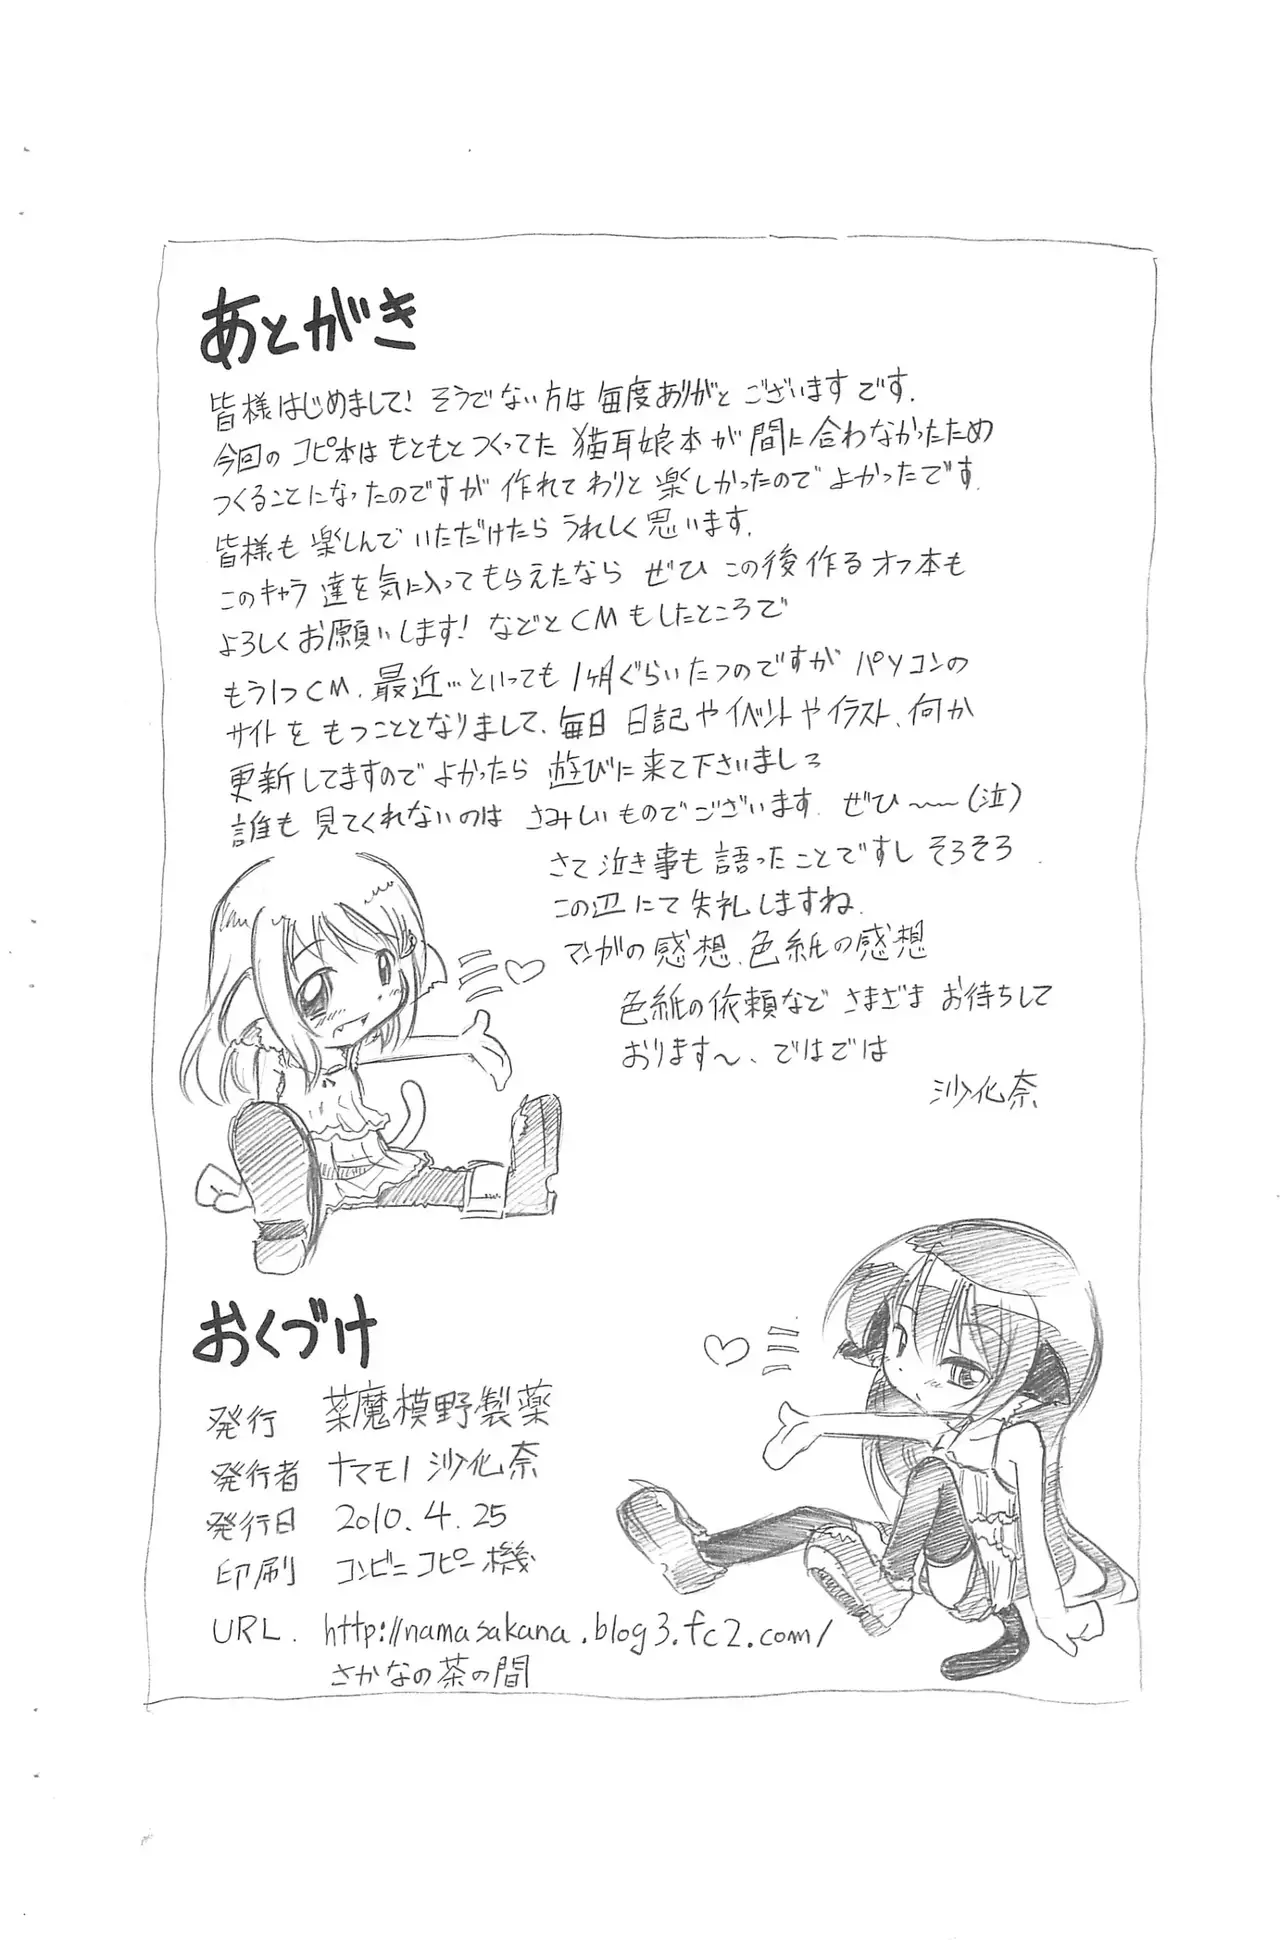 あとがき
皆様はじめまして! そうでない方は 毎度ありがと ございます です.
今回の コピ本は もともと つくってた 猫耳娘本が 間に合わなかったため
つくることになったのですが 作れて わりと 楽しかったので よかったです.
皆様も 楽しんで いただけたら うれしく 思います.
このキャラ 達を 気に入って もらえたなら ぜひ この後 作る オフ本も
よろしく お願いします! などと CMもしたところで
もう1つ CM. 最近… といっても 1ヶ月ぐらい たつのですが パソコンの
サイトを もつこととなりまして、毎日 日記や イベントや イラスト、何か
更新してますので よかったら 遊びに 来て下さいましろ
誰も 見てくれないのは さみしい ものでございます. ぜひ〜〜(泣)
さて 泣き事も 語ったことですし そろそろ
この辺にて 失礼しますね.
マンガの 感想、色紙の 感想
色紙の 依頼など さまざま お待ちして
おります〜、ではでは
沙化奈
おくづけ
発行 菜魔模野製薬
発行者 ナマモノ 沙化奈
発行日 2010.4.25
印刷 コンビニ コピー機
URL. http://namasakana.blog3.fc2.com/
さかなの茶の間